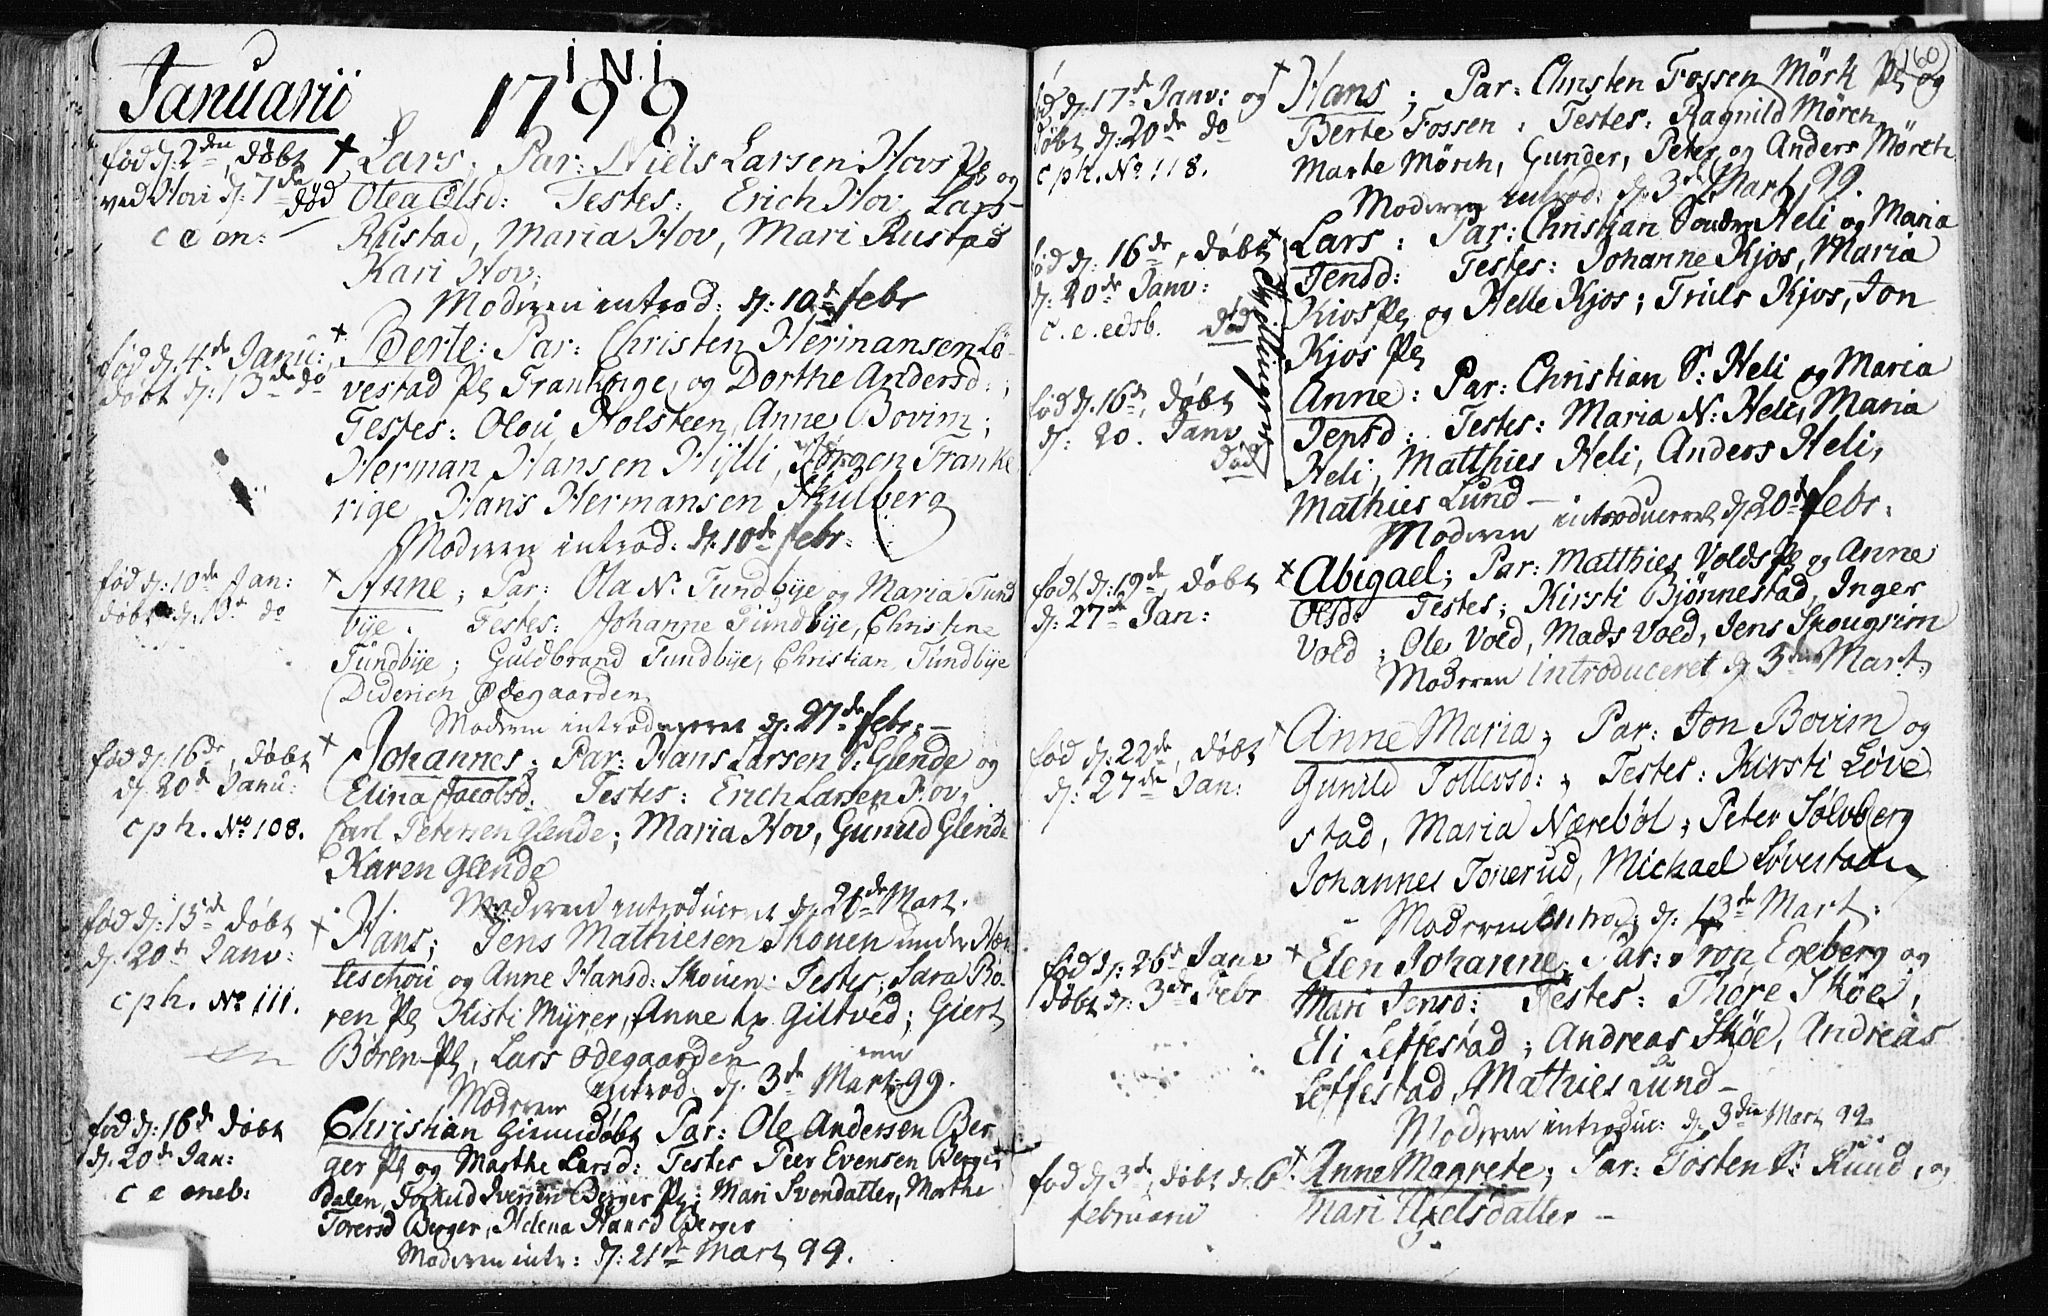 Januarii
I N I
1799
fød d: 2den, døbt
ved Hovi d: 7de
død
Lars; Par: Niels Larsen Hovs Pl og
Olea Olsd: Testes: Erich Hov, Lars
Rustad, Maria Hov, Mari Rustad
Kari Hov;
Moderen introd: d: 10de febr
fød d: 4de Janu:
døbt d: 13de do
Berte: Par: Christen Hermansen Lö-
vestad Pl Frankrige, og Dorthe Andersd:;
Testes: Olou Holsteen, Anne Bovim;
Herman Hansen Hylli, Jørgen Frank
rige, Hans Hermansen Skulberg
Moderen introd: d: 10de febr:
fød d: 10de Jan:
døbt d: 13de do
Anne; Par: Ola N: Tundbye og Maria Tund
bye. Testes: Johanne Tundbye, Christine
Tundbye; Guldbrand Tundbye, Christian Tundbye
Diderich Ødegaarden
Moderen introduceret d: 27de febr:
fød d: 16de, døbt
d: 20de Janu:
cph. No 108.
Johannes; Par: Hans Larsen S: Glende og
Elina Jacobsd. Testes: Erich Larsen Hov,
Carl Petersen Glende; Maria Hov, Gunild Glende
Karen Glende
Moderen introduceret d: 21de Mart.
fød d: 15de døbt
d: 20de Janv:
cph. No 111.
Hans; Jens Mathiesen Skouen under Hær
leschou og Anne Hansd: Skouen. Testes; Sara Bø-
ren Pl Kisti Myrer, Anne Giltved; Giert
Børen Pl, Lars Ødegaarden
Moderen introd: d: 3de Mart: 99.
fød d: 16de døbt
d: 20de Jan:
Christian Giemdøbt Par: Ole Andersen Ber
ger Pl og Marthe Larsd: Testes Peer Evensen Berger
dalen, Iversen Berger Pl; Mari Svendatter, Marthe
Torersd Berger, Helena Hansd Berger
Moderen intr: d: 21de Mart 99.
160
fød d: 17de Janv: og
døbt d: 20de do
cph. No 118.
Hans; Par: Christen Fossen Mörk Pl og
Berte Fossen; Testes: Ragnild Mörch,
Marte Mörch, Gunder, Peter og Anders Mörch
Moderen introd: d: 3de Mart, 99.
fød d: 16de, døbt
d: 20de Janv:
død
Tvillinger
Lars: Par: Christian Sondre Heli og Maria
Jensd: Testes: Johanne Kjos, Maria
Kios Pl og Helle Kjos; Truls Kjos, Jon
Kjos Pl
fød d: 16de, døbt
d: 20. Janv
død
Anne: Par: Christian S: Heli og Maria
Jensd: Testes: Maria N: Heli, Maria
Heli, Matthies Heli, Anders Heli,
Mathies Lund
Moderen introduceret d: 20de febr:
født d: 19de, døbt
d: 27de Jan:
Abigael; Par: Matthies Volds Pl og Anne
Olsd: Testes; Kirsti Bjönnestad, Inger
Vold; Ole Vold, Mads Vold, Jens Skougrim
Moderen introduceret d: 3de Mart:
fød d: 22de, døbt
d: 27de Jan:
Anne Maria; Par: Jon Bovim og
Gunild Tollevsd:; Testes: Kirsti Løve
stad, Maria Nærebøl; Peter Sølvberg
Johannes Tonerud, Michael Løvestad
Moderen introd: d: 13de Mart:
fød d: 26de Janv
døbt d: 3de Febr
Elen Johanne; Par: Tron Egeberg og
Mari Jensd: Testes: Thore Skøe,
Eli Leffestad; Andreas Skøe, Andreas
Leffestad, Mathies Lund
Moderen introduc: d: 3die Mart 99
fød d 3de, døbt d. 6t.
februarii
Anne Magrete; Par: Tosten S: Ruud, og
Mari Axelsdatter